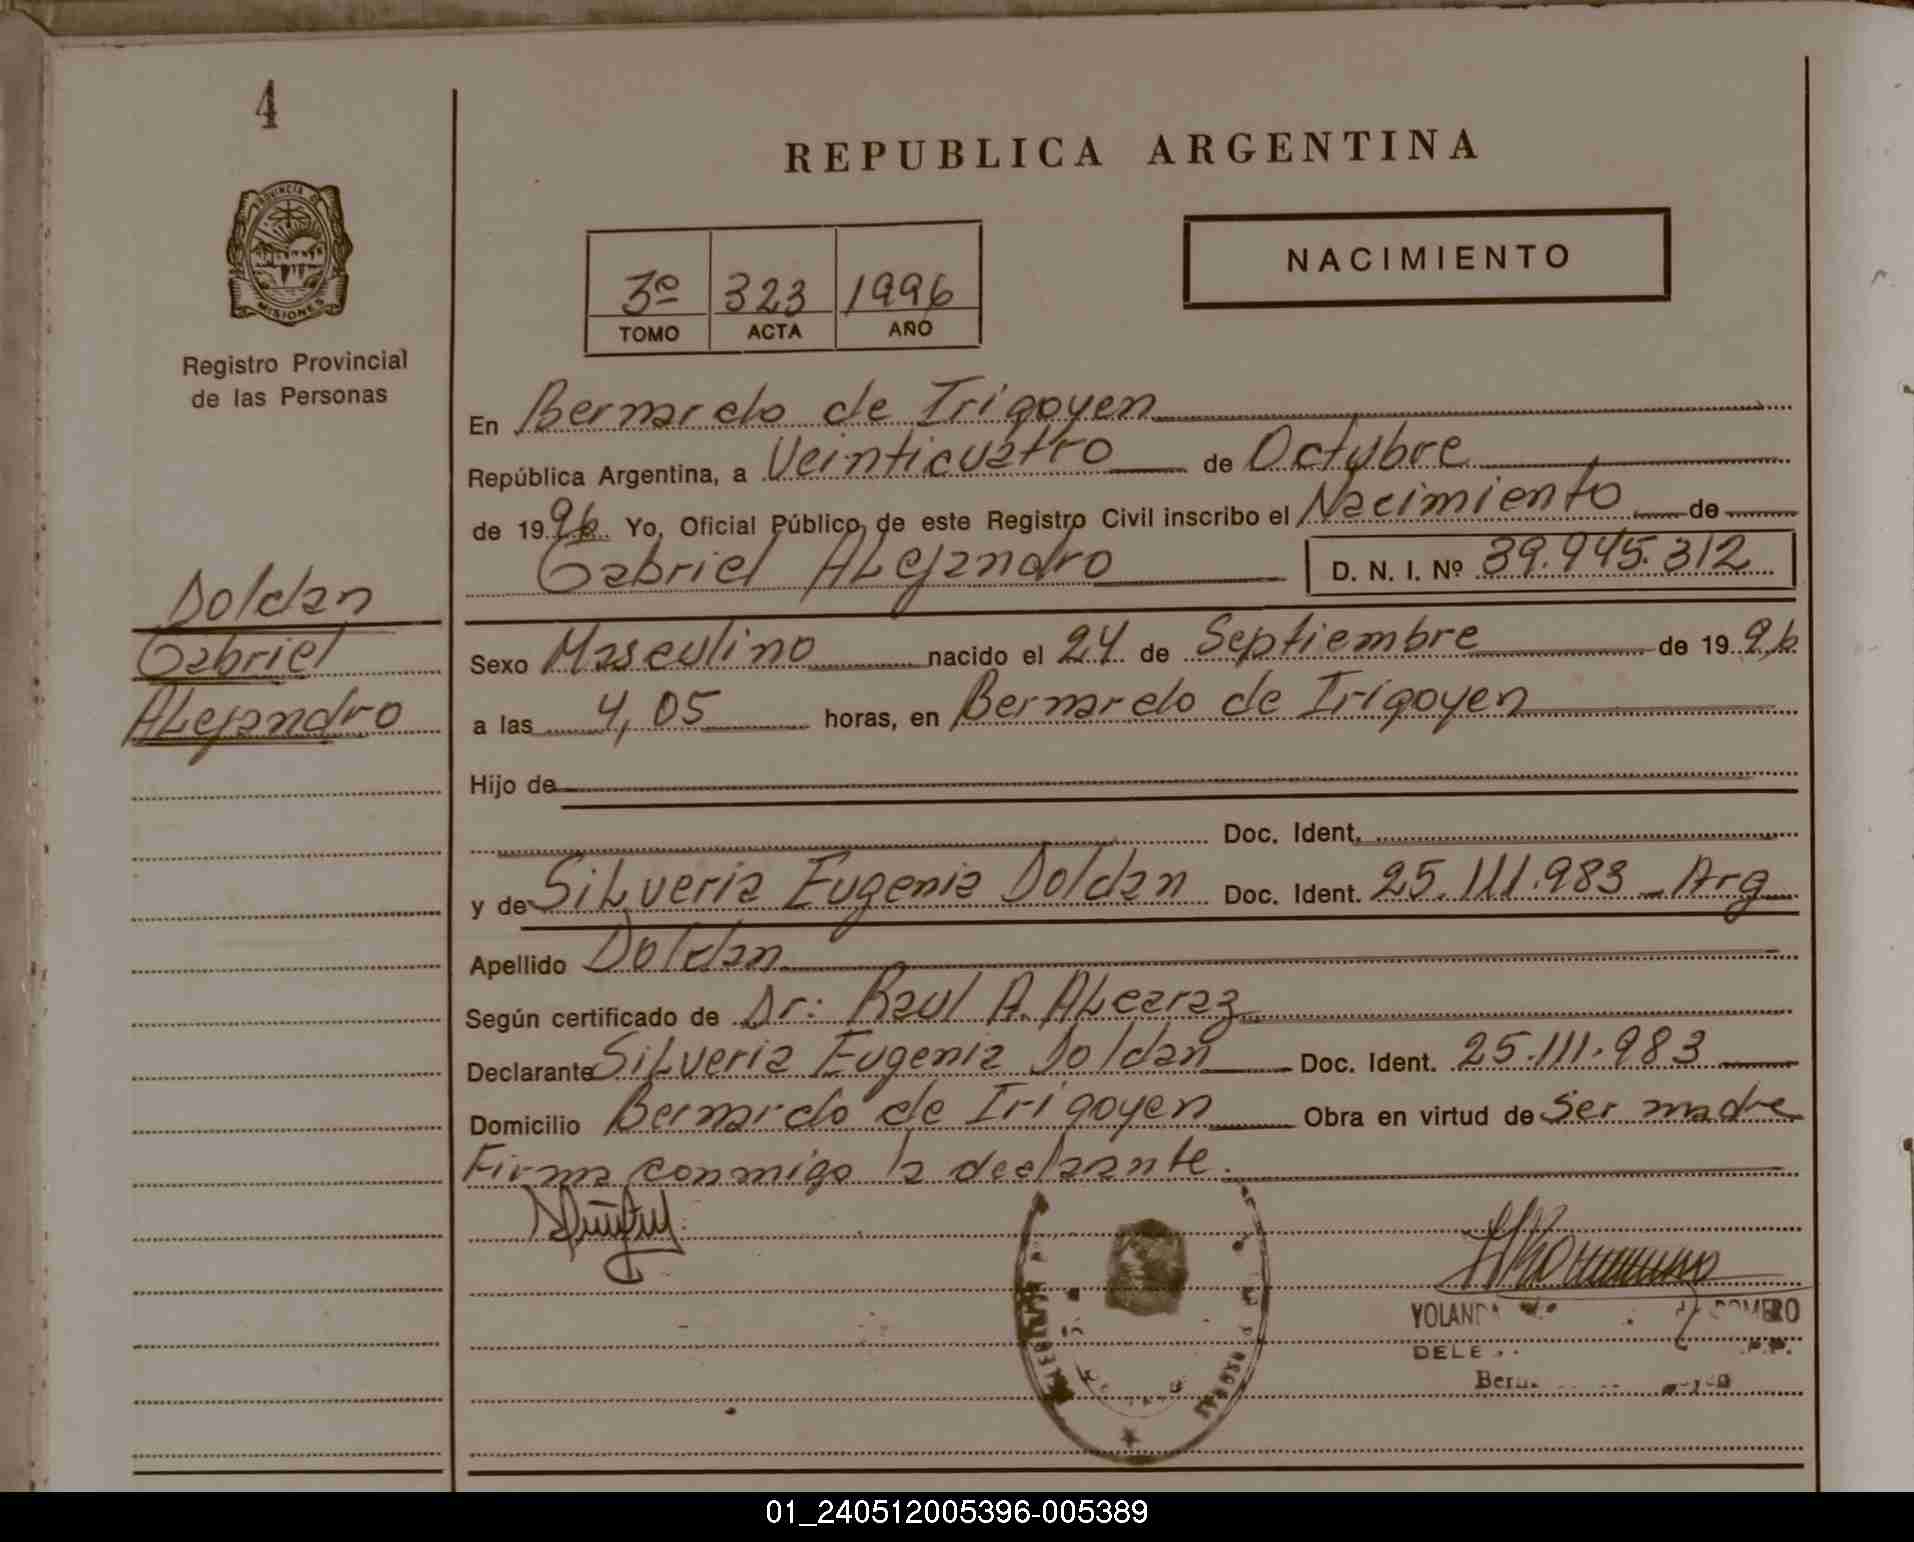 4
PROVINCIA DE
MISIONES
Registro Provincial
de las Personas
Doldan
Gabriel
ALejandro
REPUBLICA ARGENTINA
3º 323 1996
TOMO ACTA AÑO
NACIMIENTO
En Bernardo de Irigoyen
República Argentina, a Veinticuatro de Octubre
de 1996. Yo, Oficial Público de este Registro Civil inscribo el Nacimiento de
Gabriel ALejandro D. N. I. Nº 39.945.312
Sexo Masculino nacido el 24 de Septiembre de 1996
a las 4,05 horas, en Bernardo de Irigoyen
Hijo de
Doc. Ident.
y de SiLveria Eugenia Doldan Doc. Ident. 25.111.983 - Arg
Apellido Doldan
Según certificado de Dr: Raul A. ALcaraz
Declarante SiLveria Eugenia Doldan Doc. Ident. 25.111.983
Domicilio Bernardo de Irigoyen Obra en virtud de Ser madre
Firma conmigo la declarante.
YOLANDA ROMERO
01_240512005396-005389